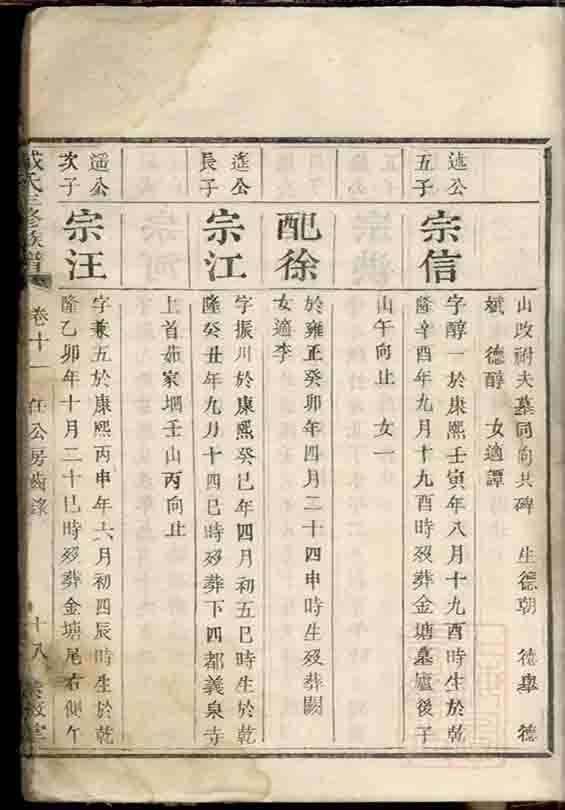 山改祔夫墓同向共碑 生德朝 德舉 德
斌 德醇 女適譚
遠公
五子
宗信
字醇一於康熙壬寅年八月十九酉時生於乾
隆辛酉年九月十九酉時歿葬金塘墓廬後子
山午向止 女一
配徐
於雍正癸卯年四月二十四申時生歿葬闕
女適李
遙公
長子
宗江
字振川於康熙癸巳年四月初五巳時生於乾
隆癸丑年九月十四巳時歿葬下四都義泉寺
上首茹家堋壬山丙向止
遥公
次子
宗汪
字兼五於康熙丙申年六月初四辰時生於乾
隆乙卯年十月二十巳時歿葬金塘尾右側午
氏三修族譜
卷十一
公房齒錄
十八